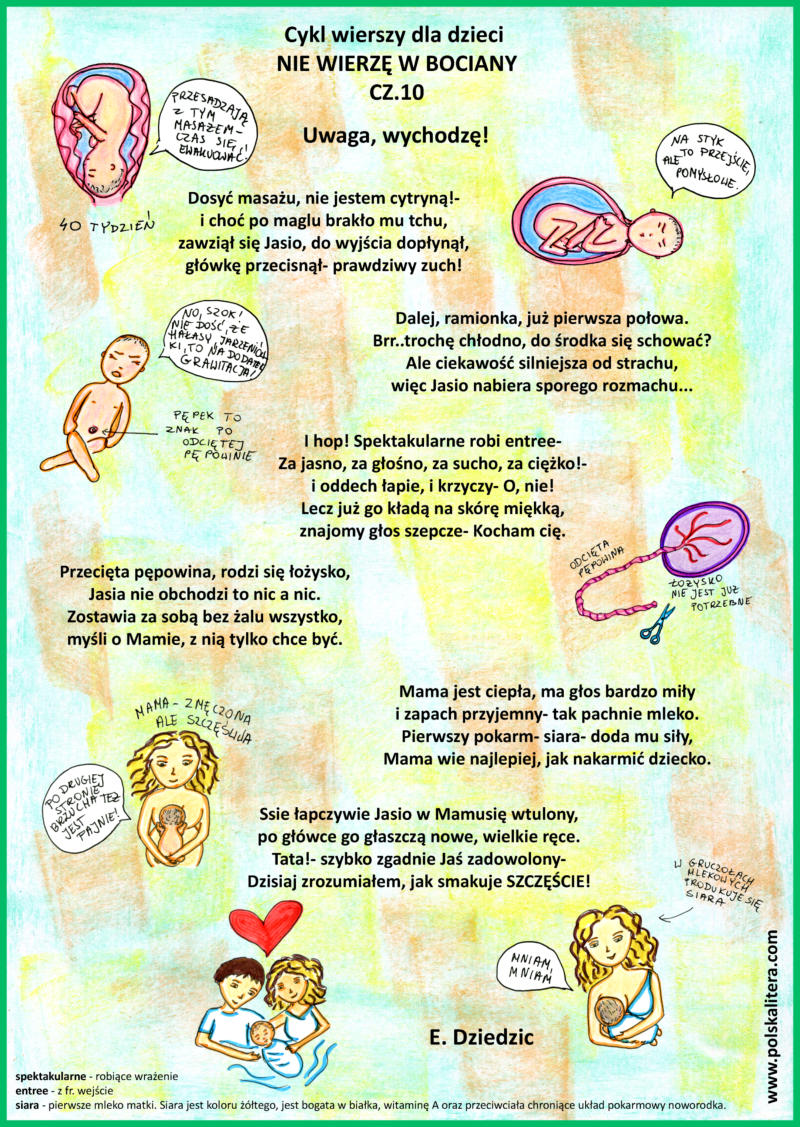 Cykl wierszy dla dzieci
NIE WIERZĘ W BOCIANY
CZ.10
Uwaga, wychodzę!
PRZESADZAJĄ
Z TYM
MASAŻEM-
CZAS SIĘ
EWAKUOWAĆ!
40 TYDZIEŃ
NA STYK
TO PRZEJŚCIE,
ALE
POMYSŁOWE.
Dosyć masażu, nie jestem cytryną!-
i choć po maglu brakło mu tchu,
zawziął się Jasio, do wyjścia dopłynął,
główkę przecisnął- prawdziwy zuch!
NO, SZOK!
NIE DOŚĆ, ŻE
HAŁASY, JARZENIÓW
KI, TO NA DODATEK
GRAWITACJA!
PĘPEK TO
ZNAK PO
ODCIĘTEJ
PĘPOWINIE
Dalej, ramionka, już pierwsza połowa.
Brr..trochę chłodno, do środka się schować?
Ale ciekawość silniejsza od strachu,
więc Jasio nabiera sporego rozmachu...
I hop! Spektakularne robi entree-
Za jasno, za głośno, za sucho, za ciężko!-
i oddech łapie, i krzyczy- O, nie!
Lecz już go kładą na skórę miękką,
znajomy głos szepcze- Kocham cię.
ODCIĘTA
PĘPOWINA
ŁOŻYSKO
NIE JEST JUŻ
POTRZEBNE
Przecięta pępowina, rodzi się łożysko,
Jasia nie obchodzi to nic a nic.
Zostawia za sobą bez żalu wszystko,
myśli o Mamie, z nią tylko chce być.
MAMA- ZMĘCZONA
ALE SZCZĘŚLIWA
PO DRUGIEJ
STRONIE
BRZUCHA TEŻ
JEST
FAJNIE!
Mama jest ciepła, ma głos bardzo miły
i zapach przyjemny- tak pachnie mleko.
Pierwszy pokarm- siara- doda mu siły,
Mama wie najlepiej, jak nakarmić dziecko.
Ssie łapczywie Jasio w Mamusię wtulony,
po główce go głaszczą nowe, wielkie ręce.
Tata!- szybko zgadnie Jaś zadowolony-
Dzisiaj zrozumiałem, jak smakuje SZCZĘŚCIE!
W GRUCZOŁACH
MLEKOWYCH
PRODUKUJE SIĘ
SIARA
MNIAM,
MNIAM
E. Dziedzic
www.polskalitera.com
spektakularne - robiące wrażenie
entree - z fr. wejście
siara - pierwsze mleko matki. Siara jest koloru żółtego, jest bogata w białka, witaminę A oraz przeciwciała chroniące układ pokarmowy noworodka.